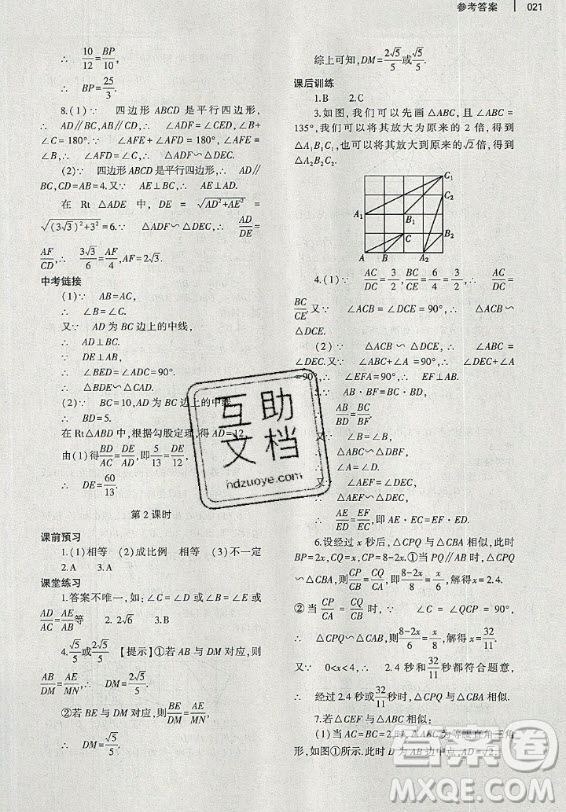 参考答案 | 021
∴ 10/12 = BP/10,
∴ BP = 25/3.
8.(1)∵ 四边形 ABCD 是平行四边形,
∴ AD∥BC,AB∥CD,∴ ∠ADF=∠CED,∠B+
∠C=180°.∵ ∠AFE+∠AFD=180°,∠AFE=
∠B,∴ ∠AFD=∠C,∴ △ADF∽△DEC.
(2)∵ 四边形 ABCD 是平行四边形,
∴ AD∥BC,CD=AB=4.又∵ AE⊥BC,∴ AE⊥AD.
在 Rt △ADE 中,DE=√(AD²+AE²)=
√((3√3)²+3²)=6.∵ △ADF∽△DEC,∴ AD/DE=
AF/CD,∴ 3√3/6=AF/4,AF=2√3.
中考链接
(1)∵ AB=AC,
∴ ∠B=∠C.
又∵ AD 为 BC 边上的中线,
∴ AD⊥BC.
∵ DE⊥AB,
∴ ∠BED=∠ADC=90°,
∴ △BDE∽△CAD.
(2)∵ BC=10,AD 为 BC 边上的中线,
∴ BD=5.
在 Rt△ABD 中,根据勾股定理,得 AD=12.
由(1)得 BD/AC=DE/AD,即 5/13=DE/12,
∴ DE=60/13.
第 2 课时
课前预习
1.(1)相等 (2)成比例 相等 (3)不一定
2.A 3.A
课堂练习
1.答案不唯一,如:∠C=∠D 或∠B=∠E 或
AD/AC=AE/AB 等 2. 2√6 3.B
4.√5/5或2√5/5 【提示】①若 AB 与 DM 对应,则
AB/DM=AE/MN,∴ DM=2√5/5;
②若 BE 与 DM 对应,则BE/DM=AE/MN,
∴ DM=√5/5.
综上可知,DM=2√5/5或√5/5.
课后训练
1.B 2.C
3.如图,我们可以先画△ABC,且∠ABC=
135°,我们可以将其放大为原来的 2 倍,得到
△A₁B₁C₁,也可以将其放大到原来的√2倍,得到
△A₂B₂C₂.
C₁
C₂
A₁
B₁
C
B₂
A
B
A₂
4.(1)∵ AC/DC=3/2,BC/CE=6/4=3/2,∴ AC/DC=
BC/CE.又∵ ∠ACB=∠DCE=90°,∴ △ACB∽
△DCE.
(2)∵ △ACB∽△DCE,∴ ∠ABC=
∠DEC.又∵ ∠ABC+∠A=90°,∴ ∠DEC+
∠A=90°,∴ ∠EFA=90°,∴ EF⊥AB.
AB·BF=BC·BD,
∴ AB/BD=BC/BF.
又∵
∽△DBF.
∴
∴
∴
,即 AE·EC=BE·EF.
6.设经过 x 秒后,△CPQ 与△CBA 相似,此时
BP=2x,CQ=x.①当 PQ∥AB 时,△CPQ∽△CBA,
则CP/CB=CQ/CA,即(8-2x)/8=x/6,解得 x=2.4.
②当CP/CA=CQ/CB时,∵ ∠C=∠C,∠QCP=90°,
∴ △CPQ∽△CAB,∴ (8-2x)/6=x/8,解得 x=32/11.
又∵ 0<x<4,∴ 2.4 秒和32/11秒都符合题意,
∴ 经过 2.4 秒或32/11秒后,△CPQ 与△CBA 相似.
7.若△CEF 与△ABC 相似:
(1)当△ABC 为等腰直角三角
形,如图①所示.此时 D 为 AB 边中点,AD=√2.
互助
文档
hdzuoye.com
答案圈
MXQE.COM